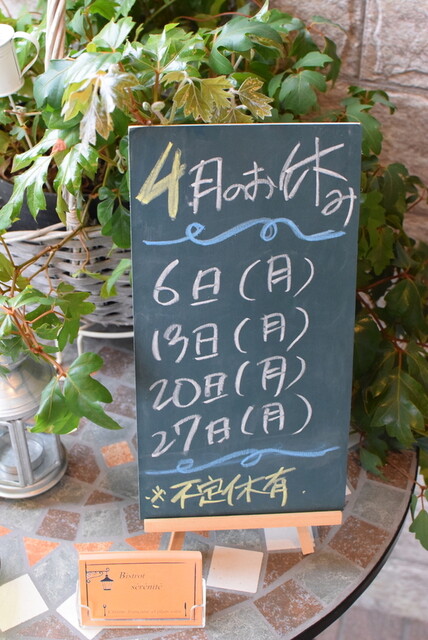 4月のお休み
6日(月)
13日(月)
20日(月)
27日(月)
※不定休有.
Bistrot
serenite